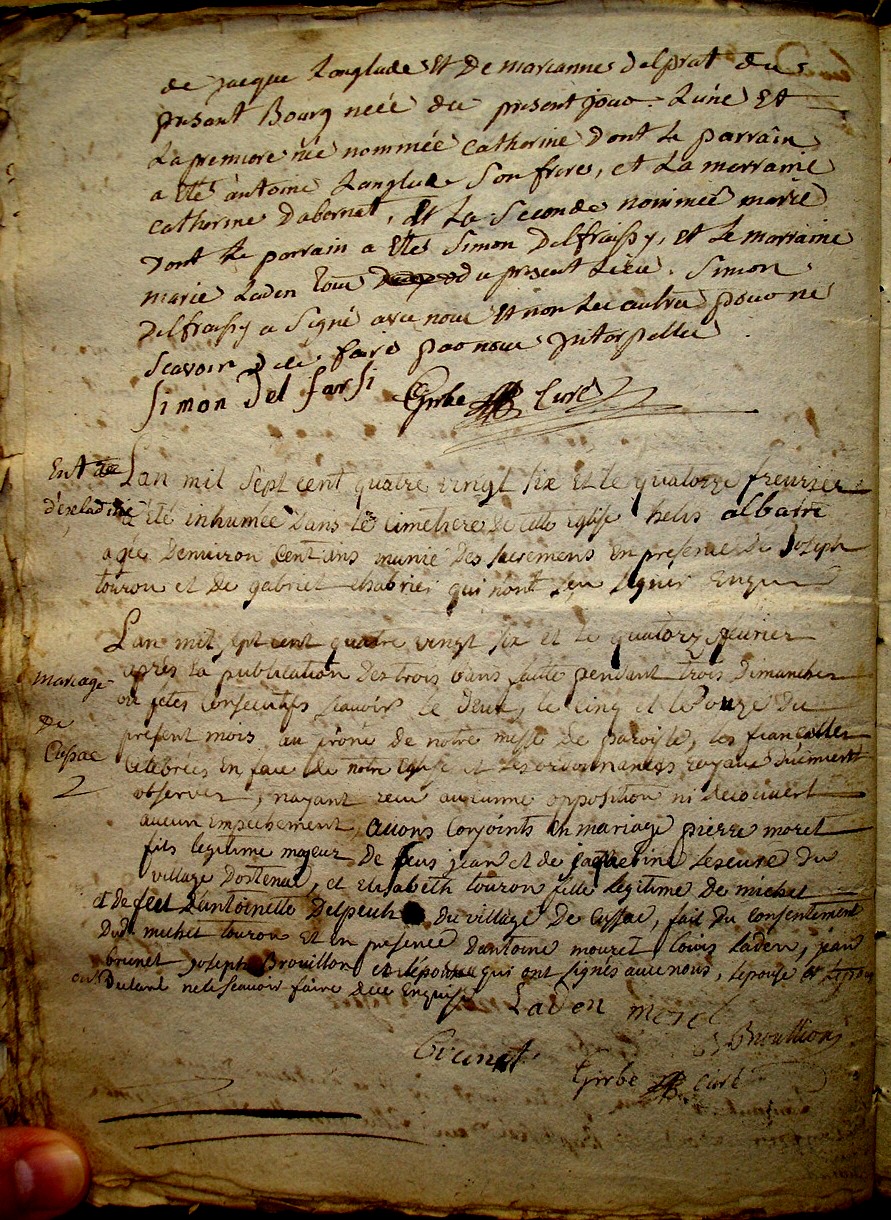 de jacque Langlade Et De marianne delprat du
présant Bourg néée du présent jour. L'une Et
La premiere née nommée Catherine Dont Le parrain
a été antoine Langlade Son frere, et La marraine
Catherine Dabernat, Et La Seconde nommée marie
Dont Le parrain a Eté Simon Delfraissy, et Le marraine
marie Laden tous du present Lieu. Simon
Delfraissy a Signé avec nous Et non Les autres pour ne
Scavoir de faire par nous Interpellés
Simon Del farsi Girbe Curé
Ent
Lan mil Sept cent quatre vingt six et le quatorze fevrier
a été inhumée Dans le cimetiere de cette Eglise helis albatre
agée Denviron Cent ans munie Des sacremens En presence De Joseph
touron et De gabriel chabrier qui nont seu signer Enquis
Lan mil sept cent quatre vingt six et le quatorze fevrier
mariage
De
Cussac
après la publication Des trois bans faitte pendant trois Dimanches
ou fetes Consecutifs scavoir le Deux, le cinq et le Douze Du
present mois au prone de notre messe De paroisse, les fiancalles
Celebrées En face De notre Eglise et les ordonnances royaux Duement
observés, nayant recu aucunne opposition ni decouvert
aucun Empechement, auons Conjoints En mariage pierre moret
fils legitime majeur De feus jean et de jaquerine Leseure du
village Dostenac, et Elisabeth touron fille legitime De michel
et de feu Dantoinette Delpeuch du village De Cussac, fait Du Consentement
Dud. michel touron Et En presence Dantoine mouret, louis Laden, jean
brunet, joseph Brouillon et qui ont signés avec nous, l'epouse
ne le scavoir faire De ce Enquis
Laden moret
Brunet Brouillion
Girbe Curé